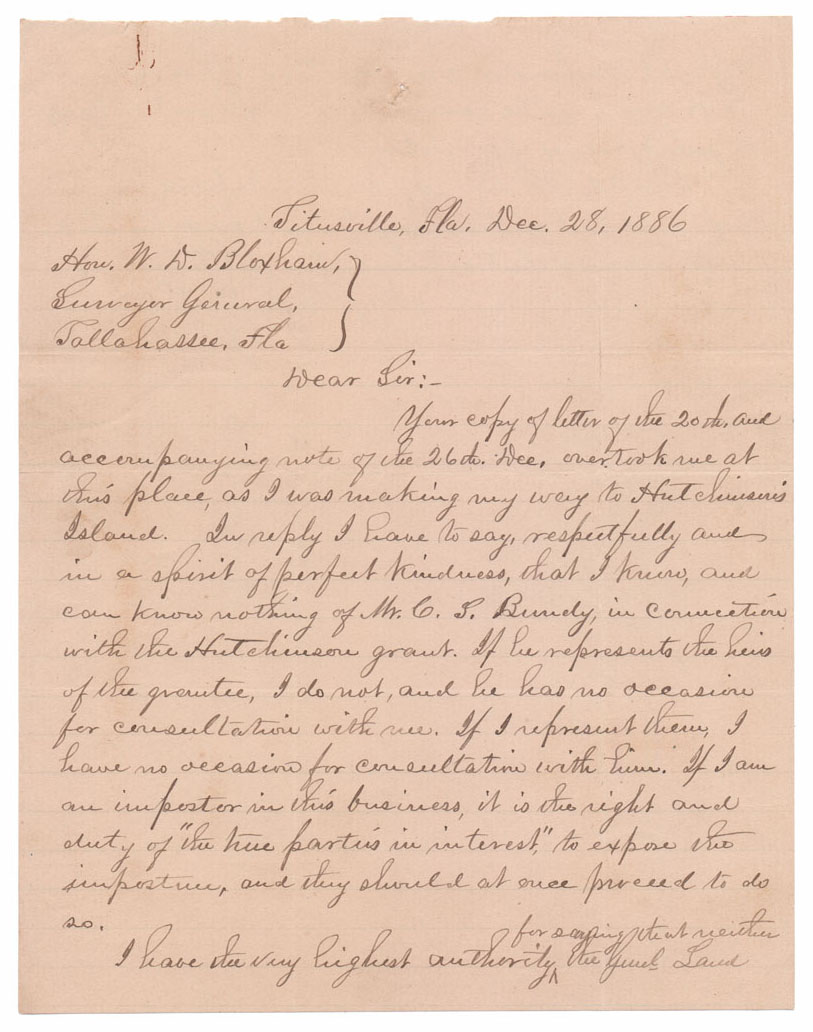 Titusville, Fla. Dec. 28, 1886
Hon. W. D. Bloxham,
Surveyor General,
Tallahassee, Fla
Dear Sir:-
Your copy of letter of the 20th. and
accompanying note of the 26th. Dec. overtook me at
this place, as I was making my way to Hutchinson's
Island. In reply I have to say, respectfully and
in a spirit of perfect kindness, that I know, and
can know nothing of Mr. C. S. Bundy, in connection
with the Hutchinson grant. If he represents the heirs
of the grantee, I do not, and he has no occasion
for consultation with me. If I represent them, I
have no occasion for consultation with him. If I am
an impostor in this business, it is the right and
duty of "the true parties in interest," to expose the
imposture, and they should at once proceed to do
so.
for saying that neither
I have the very highest authority ^ the Genl. Land